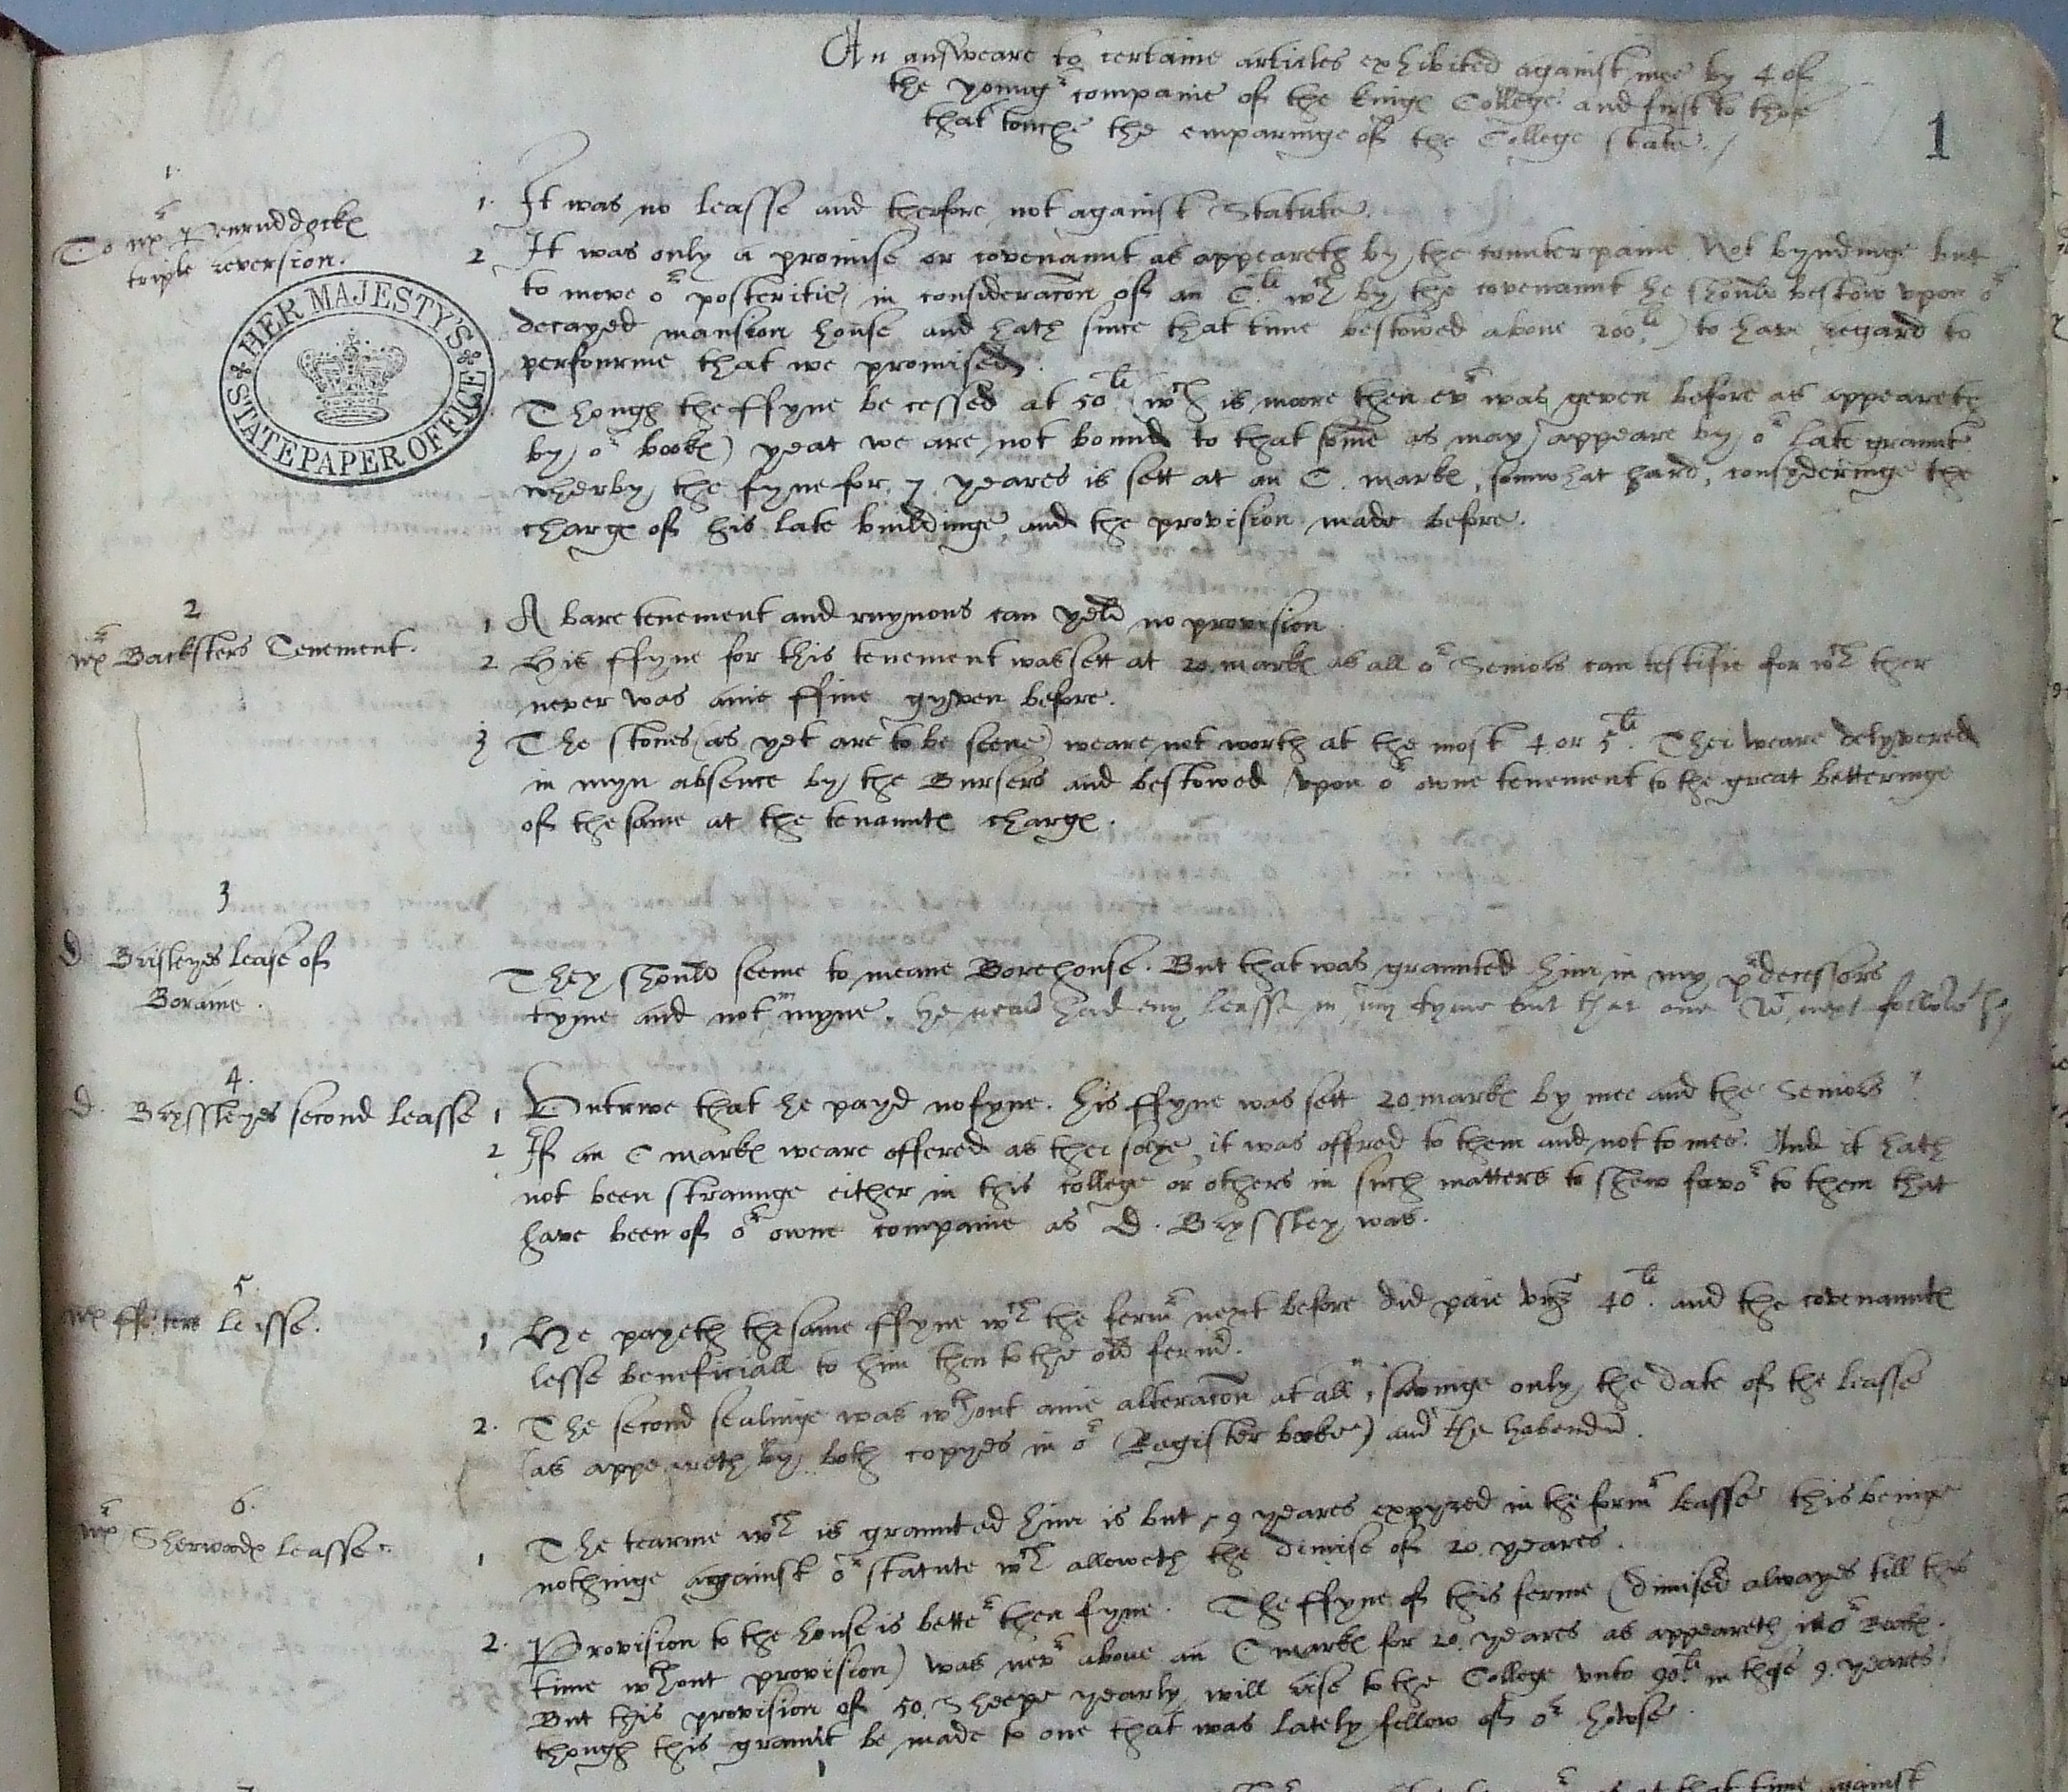 An answeare to certaine articles exhibited against mee by 4 of
the yonngr companie of the kinges College and first to those
that touche the emparinge of the College state./
1
1.
To Mr Penruddockes
triple reversion.
HER MAJESTY'S STATE PAPER OFFICE
1. It was no leasse and therfore not against Statute.
2 It was only a promise or covenannt as appeareth by the counterpaine Not byndinge but
to move or posteritie, in consideracon of an C.li wch by the covenannt he should bestow upon or
decayed mansion house and hath since that time bestowed above 200li) to have regard to
perfourme that we promised.
Though the ffyne be cessed at 50li (wch is moore then evr was geven before as appeareth
by or bookes) yeat we are not bound to that some as may appeare by or late grannt
wherby the fyne for 7 yeares is sett at an C. markes, somwhat hard, consyderinge the
charge of his late buildinge and the provision made before.
2
Mr Backsters Tenement.
1 A bare tenement and ruynous can yeld no provision
2 His ffyne for this tenement was sett at 20 markes as all or Seniors can testifie for wch ther
never was anie ffine gyven before.
3 The stones (as yet are to be seene) weare not worth at the most 4 or 5li. Thei weare delyvered
in myn absence by the Bursers and bestowed upon or owne tenement to the great betteringe
of the same at the tenanntes charges.
3
D Brisleyes lease of
Borame.
They should seeme to meane Borehouse. But that was grannted him in my prdecessors
tyme and not in myne. he never had eny leasse in my tyme but that one wch next followeth
4.
D. Bryssleyes second leasse
1 Untrwe that he payd no fyne. his ffyne was sett 20 markes by mee and the Seniors
2 If an C markes weare offered as thei saye, it was offred to them and not to mee. And it hath
not been straunge either in this college or others in such matters to shew favor to them that
have been of or owne companie as D. Bryssley was.
5.
leasse.
1 He payeth the same ffyne wch the fermr next before did paie viz 40li. and the covenanntes
lesse beneficiall to him then to the old fermr.
2. The second sealinge was wthout anie alteracon at all, savinge only the date of the leasse
(as appeareth by both copyes in or Register booke) and the habendu.
6.
Mr Sherwoodes leasse.
1 The tearme wch is grannted him is but 9 yeares expyred in the formr leasse this beinge
nothinge against or statute wch alloweth the dimise of 20. yeares.
2. Provision to the house is bettr then fyne. The ffyne of this ferme (dimised alwayes till this
time wthout provision) was nevr above an C markes for 20. yeares as appeareth in or Bookes.
But this provision of 50. Sheepe yearly will rise to the College unto 90li in these 9. yeares
though this grannt be made to one that was lately fellow of or howse.